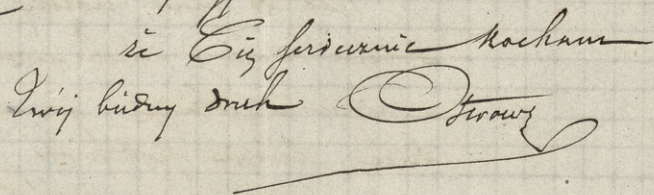 że Cię serdecznie kocham
Twój biedny druh